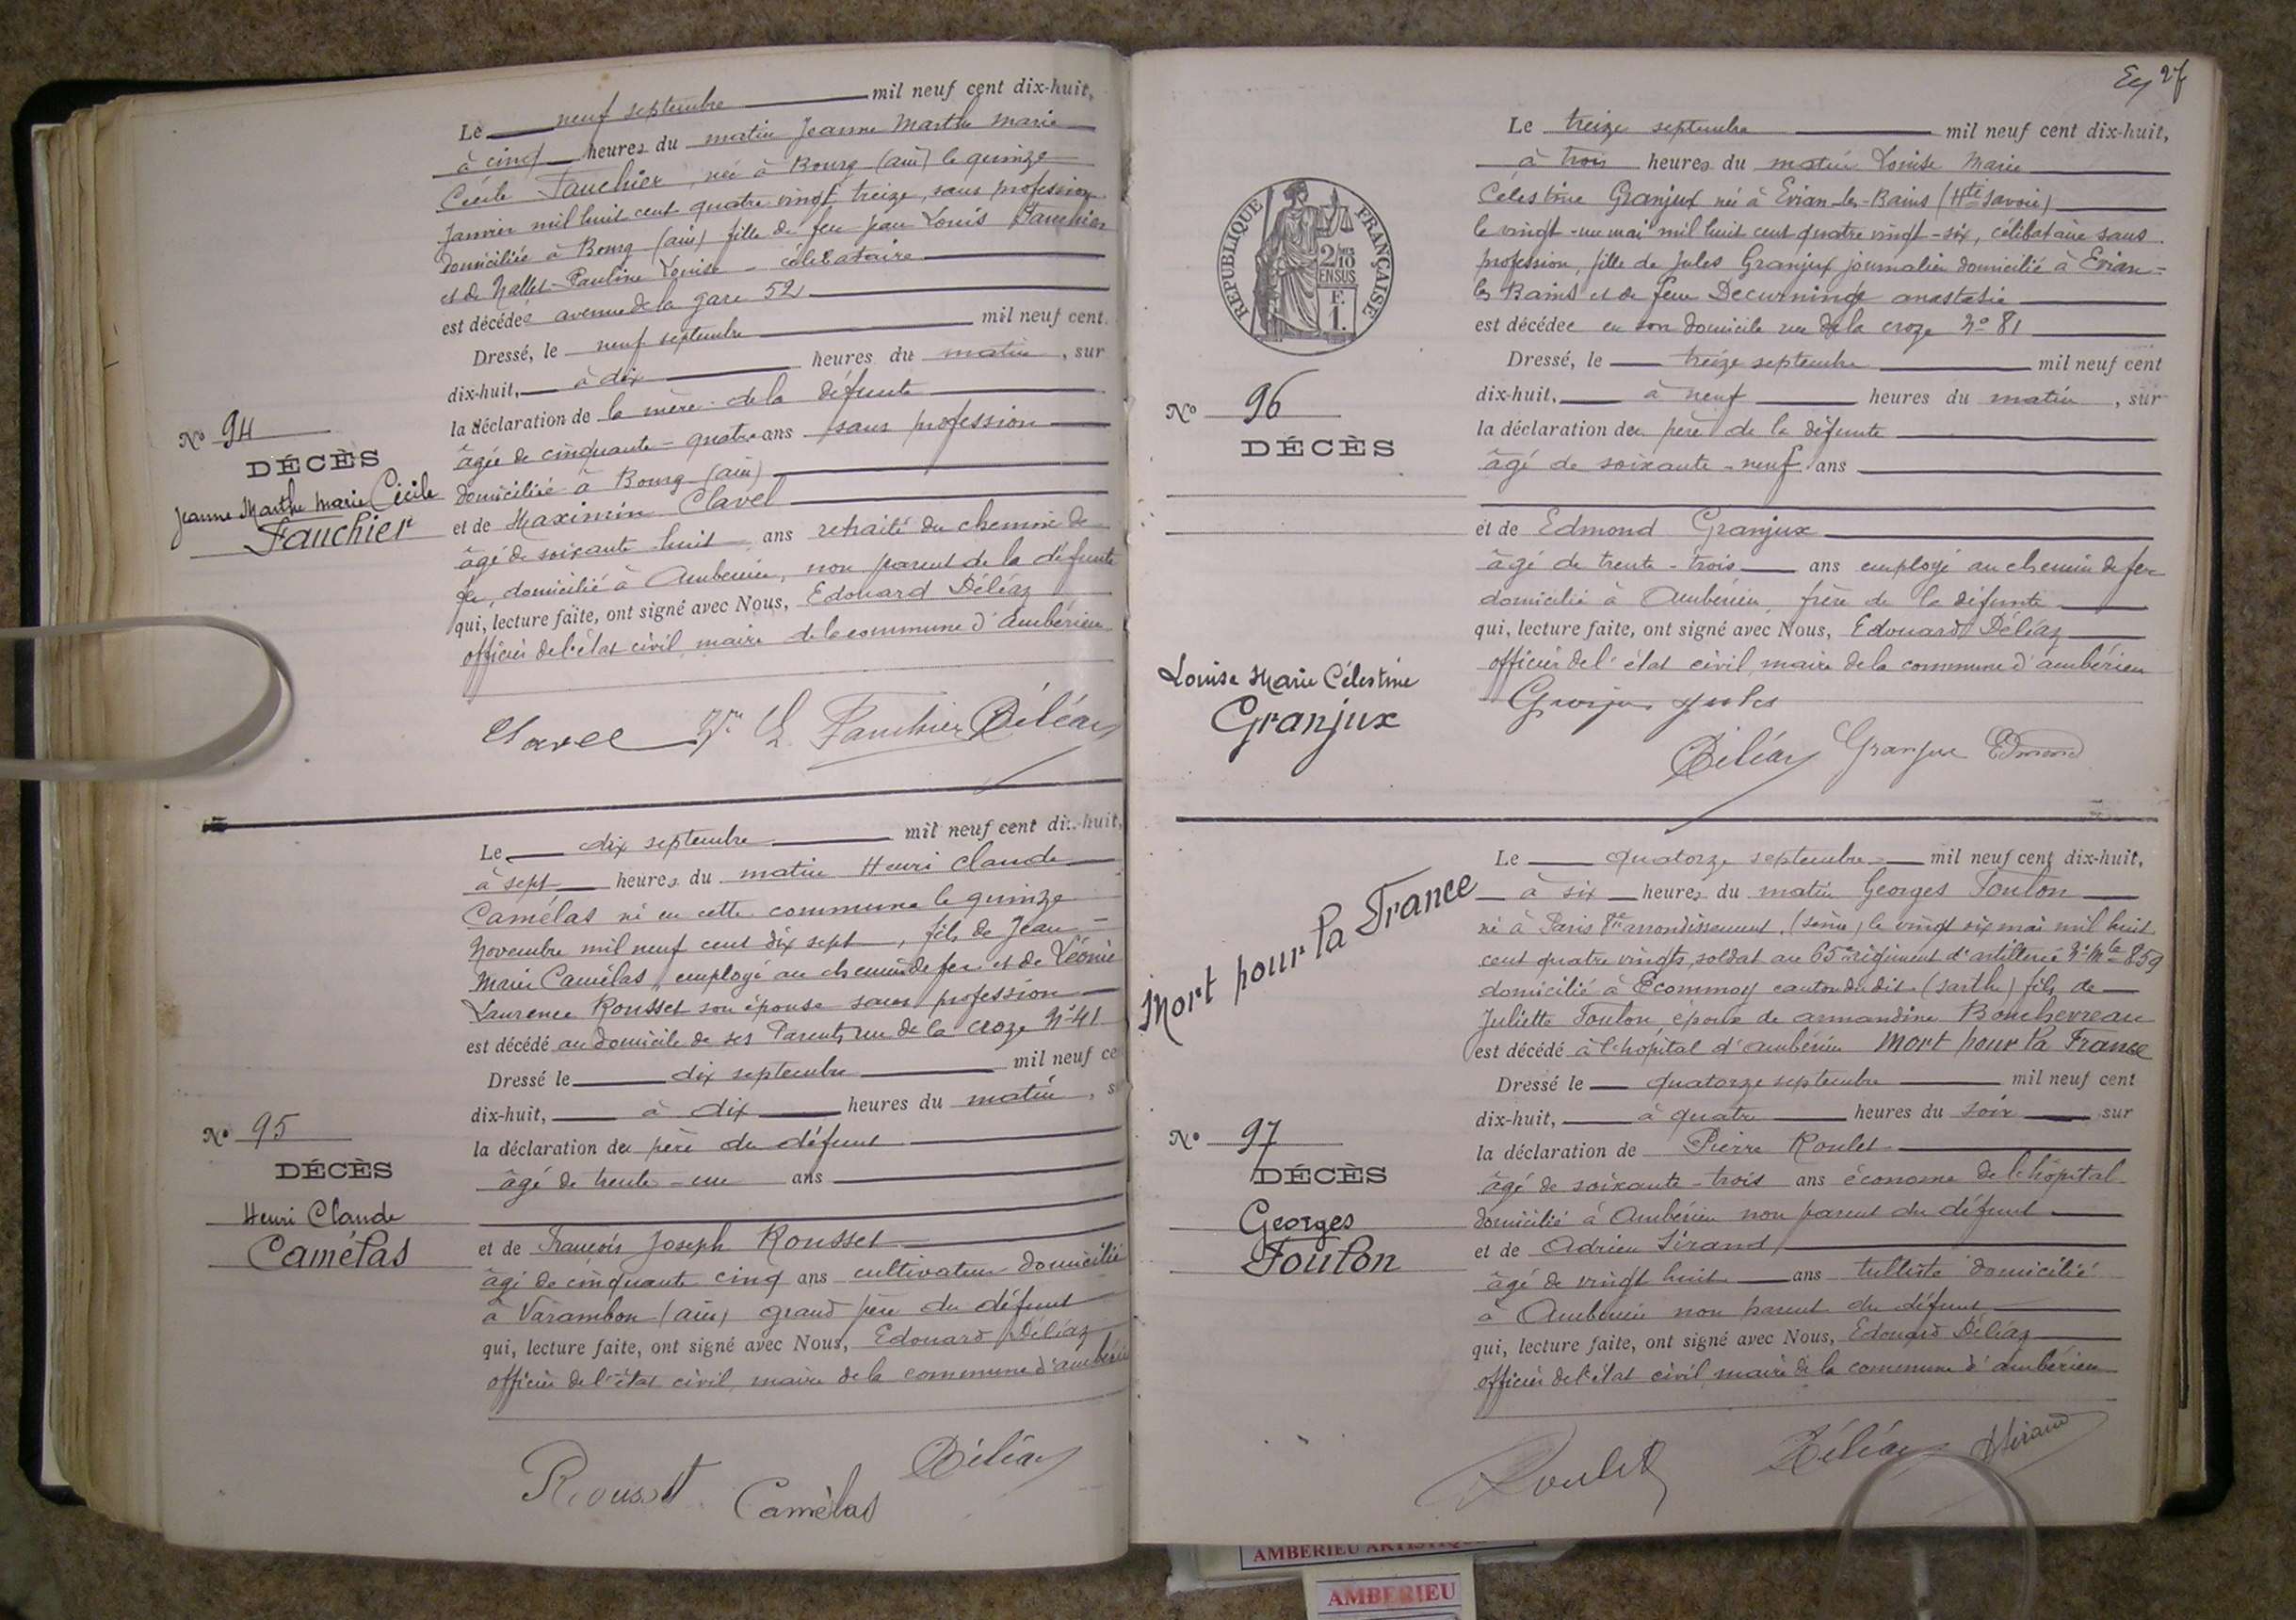 Le neuf septembre mil neuf cent dix-huit,
à cinq heures du matin Jeanne Marthe Marie
Cécile Fauchier, née à Bourg (ain) le quinze
Janvier mil huit cent quatre vingt treize, sans profession
domiciliée à Bourg (ain) fille de feu Jean Louis Fauchier
et de Nallet Pauline Louise - célibataire
est décédée avenue de la gare 52
Dressé, le neuf septembre mil neuf cent
dix-huit, à dix heures du matin, sur
la déclaration de la mère de la défunte
âgée de cinquante-quatre ans sans profession
domiciliée à Bourg (ain)
et de Maximin Clavel
âgé de soixante-huit ans retraité du chemin de
fer, domicilié à Ambérieu, non parent de la défunte
qui, lecture faite, ont signé avec Nous, Edouard Déléaz
officier de l'état civil, maire de la commune d'Ambérieu
No 94
DÉCÈS
Jeanne Marthe Marie Cécile
Fauchier
Clavel Vve L. Fauchier Déléaz
Le dix septembre mil neuf cent dix-huit,
à sept heures du matin Henri Claude
Camélas né en cette commune le quinze
Novembre mil neuf cent dix sept, fils de Jean
Marie Camélas, employé au chemin de fer et de Léonie
Laurence Rousset son épouse sans profession
est décédé au domicile de ses Parents, rue de la croze No 41
Dressé le dix septembre mil neuf ce
dix-huit, à dix heures du matin, s
la déclaration du père du défunt
âgé de trente-un ans
et de François Joseph Rousset
âgé de cinquante cinq ans cultivateur domicilié
à Varambon (ain) grand père du défunt
qui, lecture faite, ont signé avec Nous, Edouard Déléaz
officier de l'état civil, maire de la commune d'ambérieu
No 95
DÉCÈS
Henri Claude
Camélas
Rousset Camélas Déléaz
27
Le treize septembre mil neuf cent dix-huit,
à trois heures du matin Louise Marie
Célestine Granjux née à Evian-les-Bains (Hte Savoie)
le vingt-un mai mil huit cent quatre vingt-six, célibataire sans
profession, fille de Jules Granjux journalier domicilié à Evian-
les Bains et de feue Decurninge anastasie
est décédée en son domicile rue de la croze No 81
Dressé, le treize septembre mil neuf cent
dix-huit, à neuf heures du matin, sur
la déclaration du père de la défunte
âgé de soixante-neuf ans
et de Edmond Granjux
âgé de trente-trois ans employé au chemin de fer
domicilié à Ambérieu, frère de la défunte
qui, lecture faite, ont signé avec Nous, Edouard Déléaz
officier de l'état civil, maire de la commune d'ambérieu
REPUBLIQUE FRANÇAISE
2/10
EN SUS
F.
1.
No 96
DÉCÈS
Louise Marie Célestine
Granjux
Granjux Jules
Déléaz Granjux Edmond
Le quatorze septembre mil neuf cent dix-huit,
à six heures du matin Georges Toulon
né à Paris 8e arrondissement, (seine) le vingt six mai mil huit
cent quatre vingts, soldat au 65e régiment d'artillerie No Mle 859
domicilié à Ecommoy canton dudit (sarthe) fils de
Juliette Toulon, époux de armandine Bouchevreau
est décédé à l'hôpital d'ambérieu Mort pour la France
Dressé le quatorze septembre mil neuf cent
dix-huit, à quatre heures du soir sur
la déclaration de Pierre Roulet
âgé de soixante-trois ans économe de l'hôpital
domicilié à Ambérieu non parent du défunt
et de Adrien Sirand,
âgé de vingt huit ans tulliste domicilié
à Ambérieu non parent du défunt
qui, lecture faite, ont signé avec Nous, Edouard Déléaz
officier de l'état civil, maire de la commune d'ambérieu
Mort pour la France
No 97
DÉCÈS
Georges
Toulon
Roulet Déléaz ASirand
AMBERIEU ARTISTIQUE
AMBERIEU